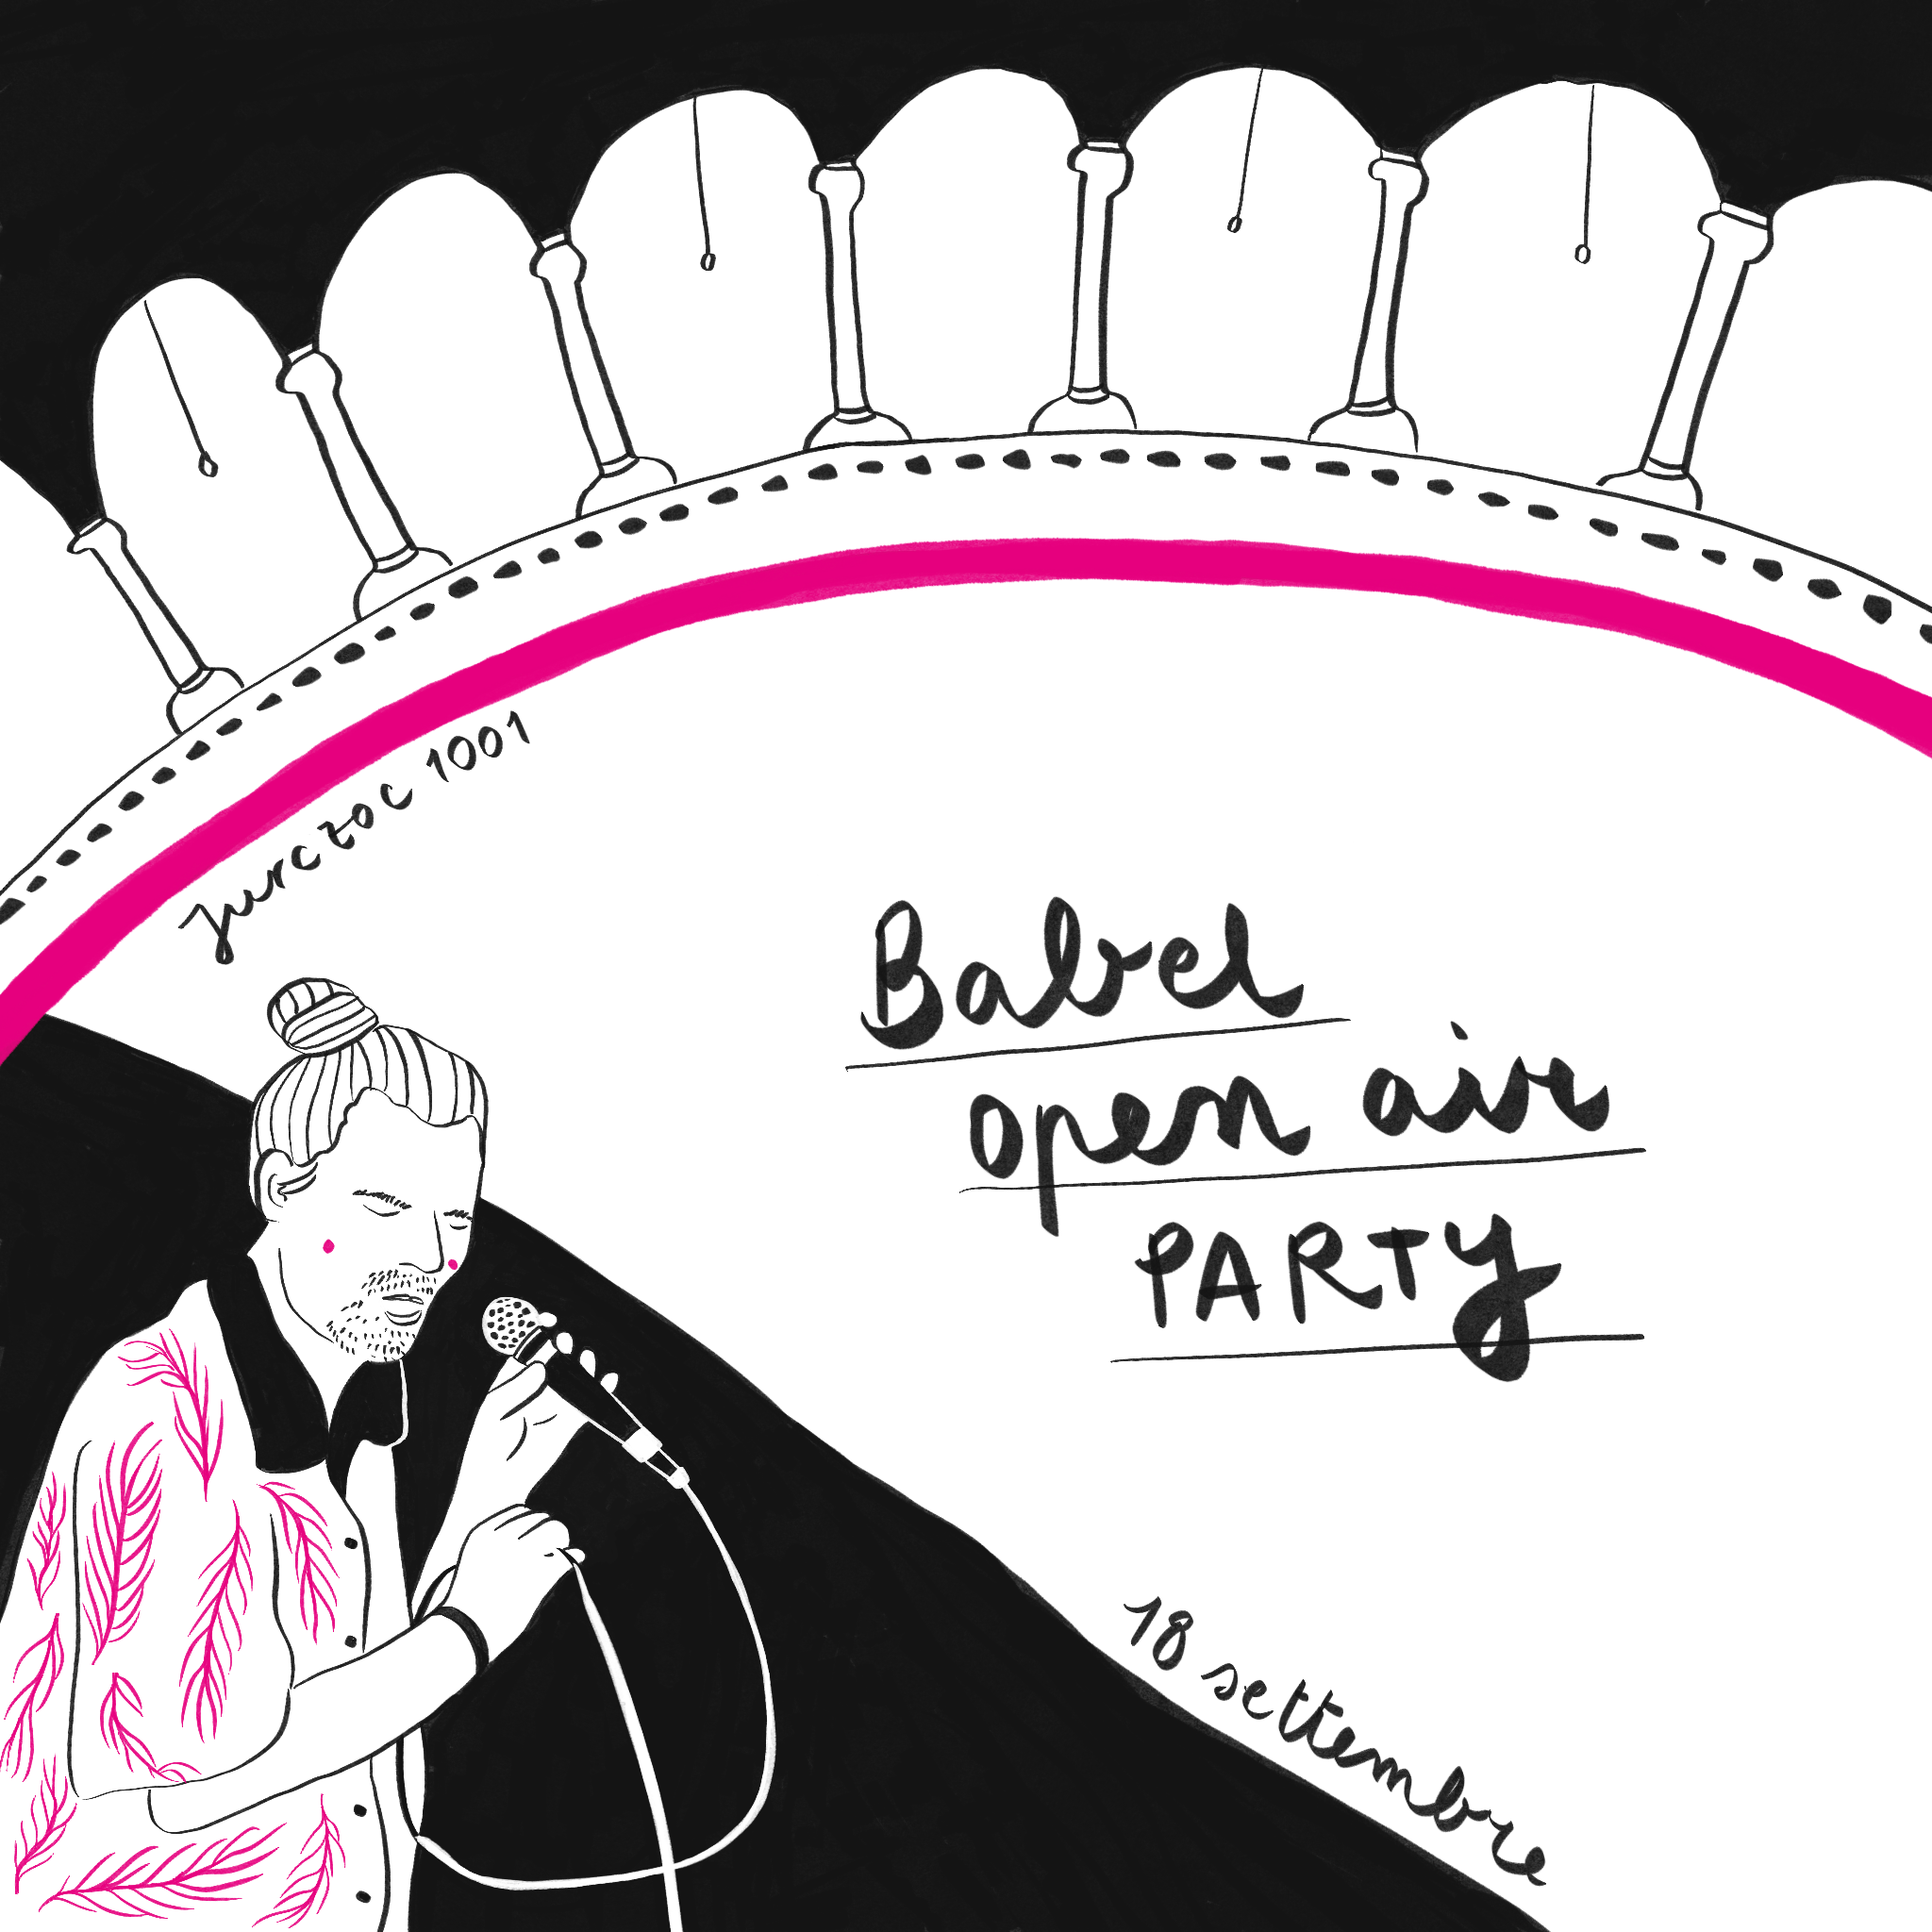 Jurczok 1001
Babel
open air
PARTY
18 settembre